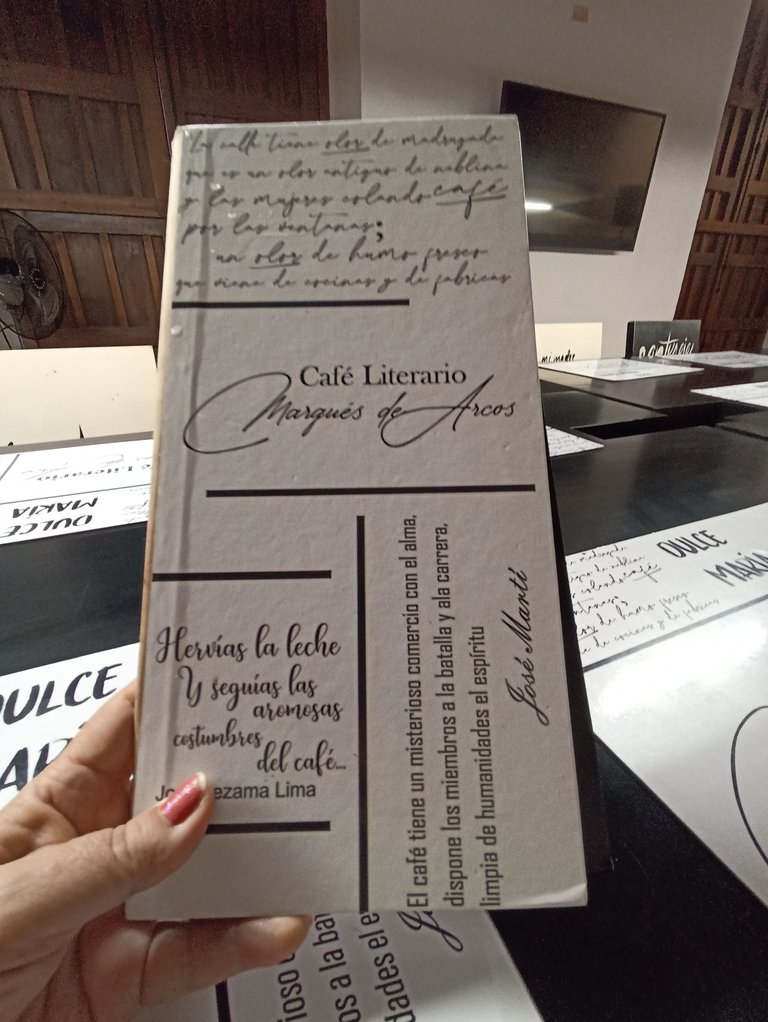 La calle tiene olor de madrugada
que es un olor antiguo de neblina
y las mujeres colando café
por las ventanas;
un olor de humo fresco
que viene de cocinas y de fabricas
Café Literario
Marqués de Arcos
Hervías la leche
Y seguías las
aromosas
costumbres
del café...
Lima
El café tiene un misterioso comercio con el alma,
dispone los miembros a la batalla y ala carrera,
limpia de humanidades el espíritu
José Martí
mi madre
Literario
DULCE
MARÍA
DULCE
DULCE
MARÍA
café
de humo fresco
de cocinas y de fabricas